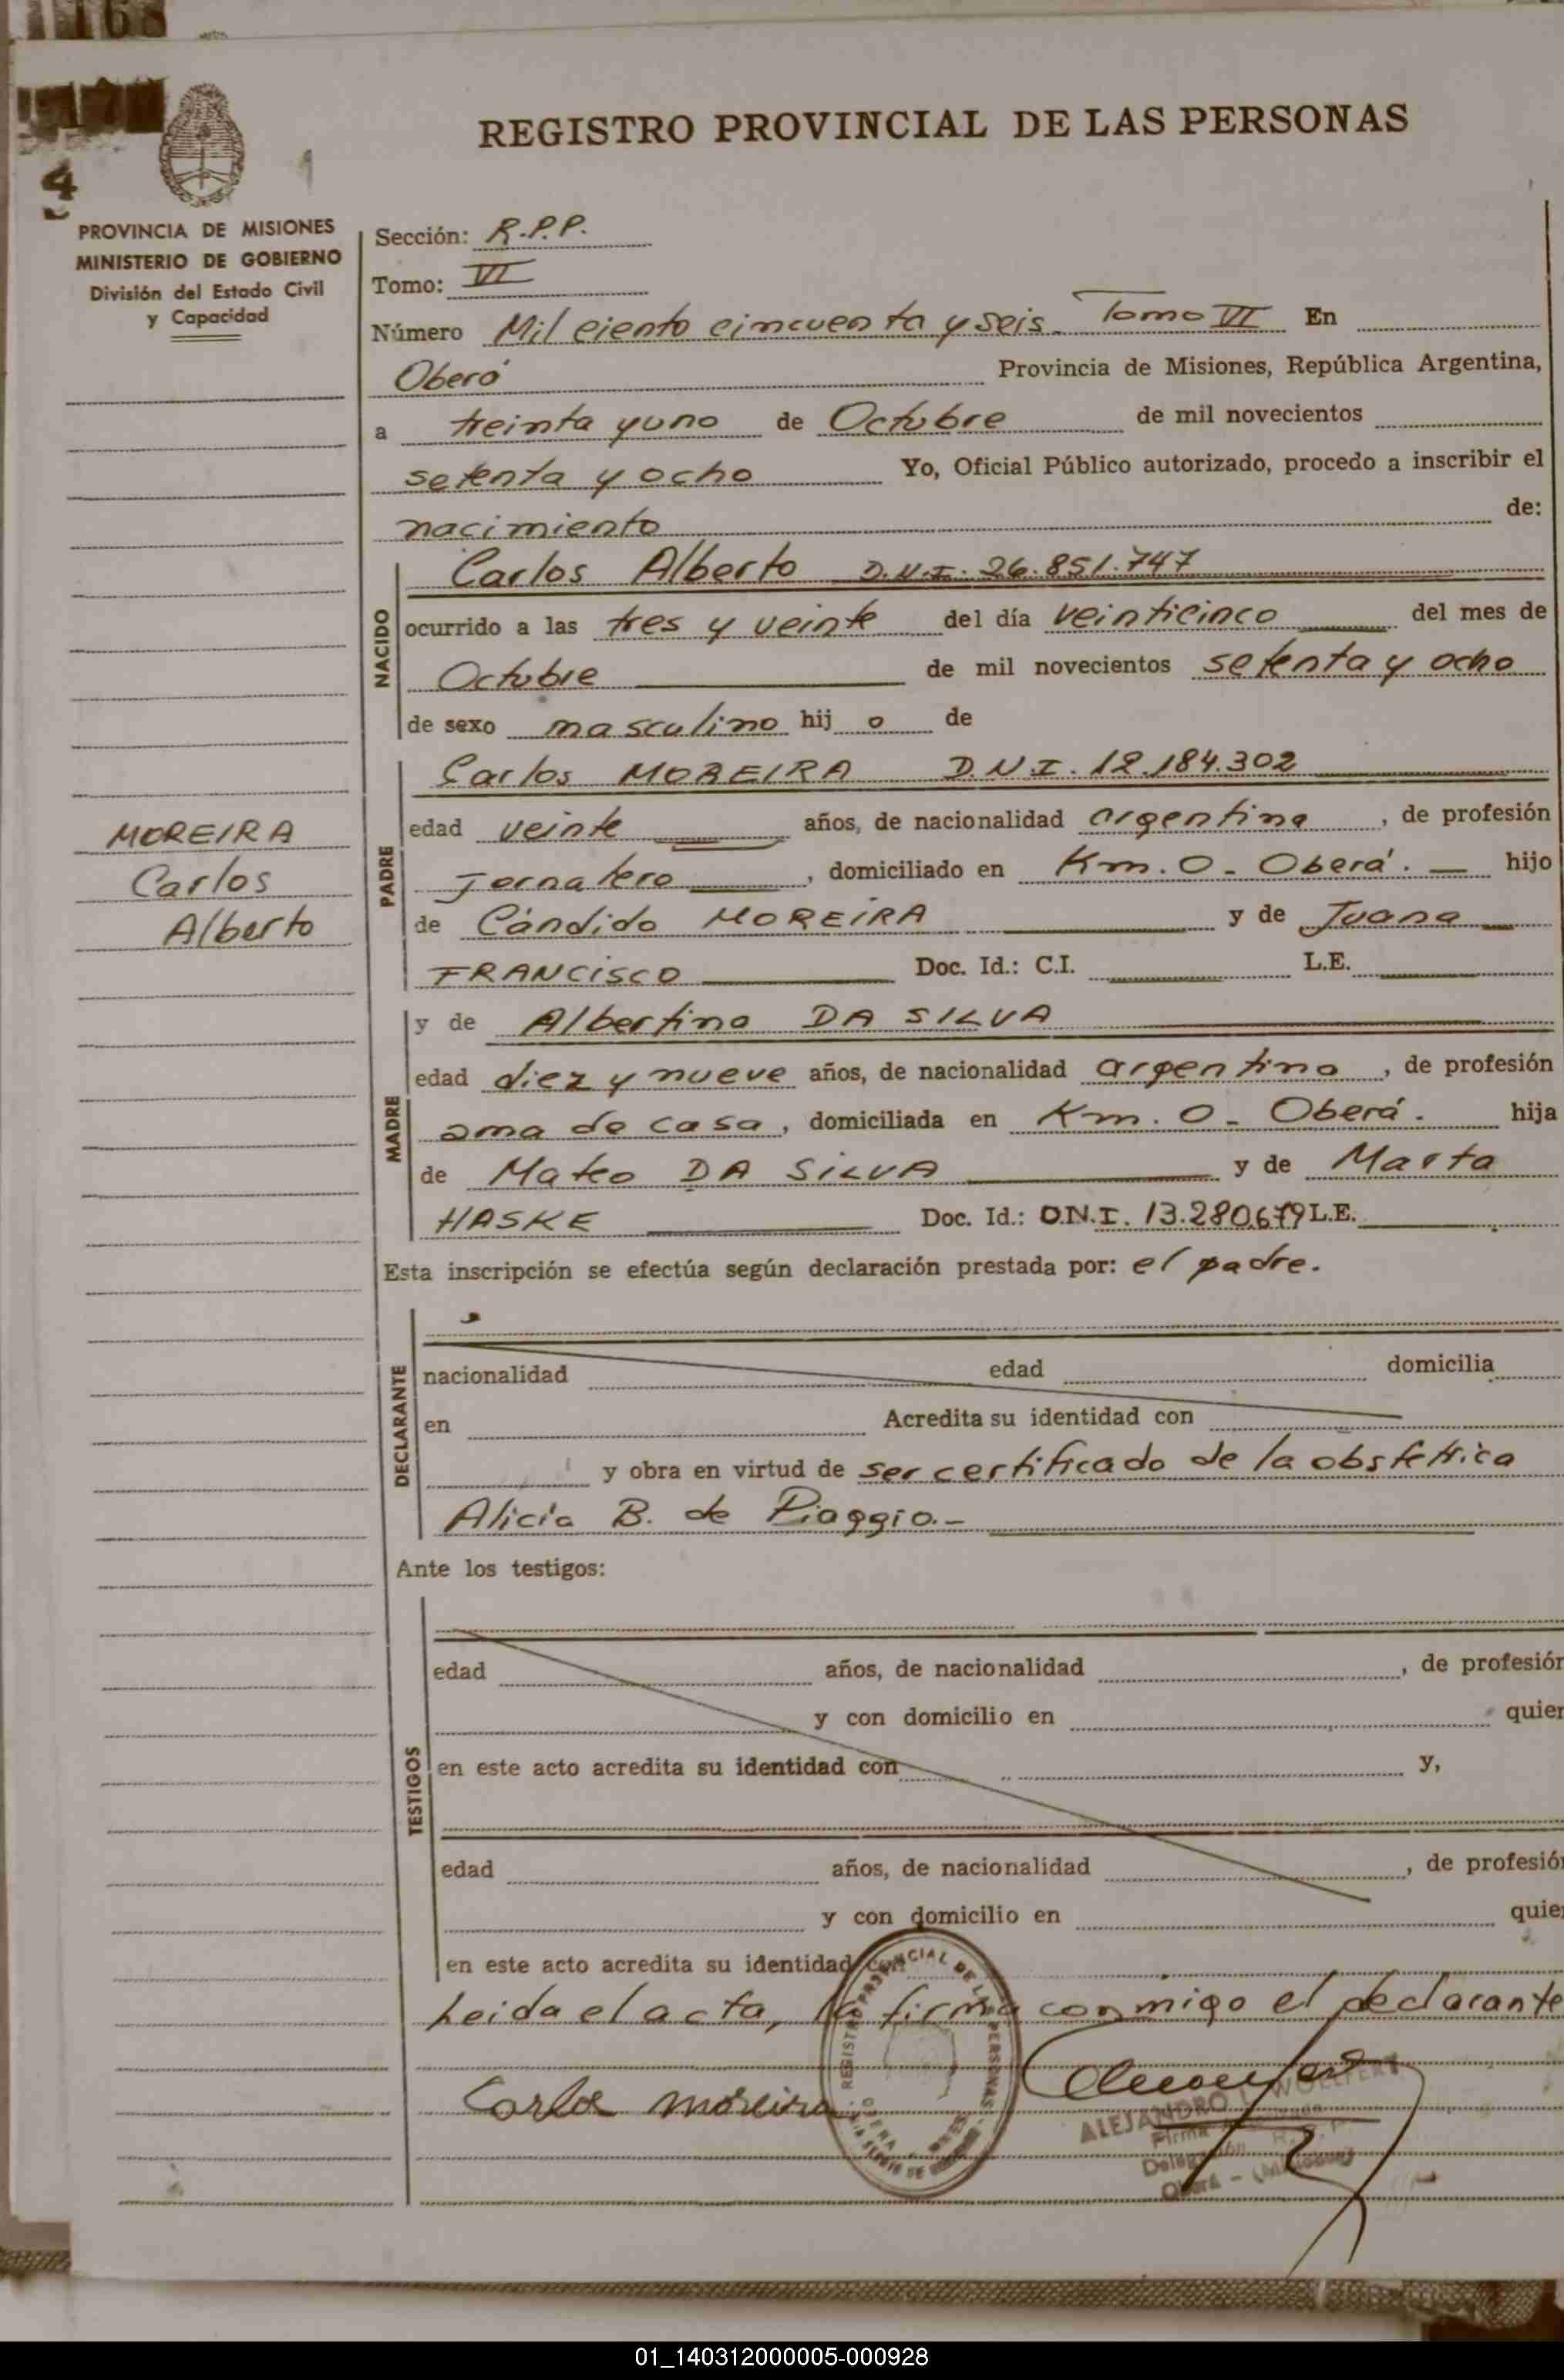 168
4
REGISTRO PROVINCIAL DE LAS PERSONAS
PROVINCIA DE MISIONES
MINISTERIO DE GOBIERNO
División del Estado Civil
y Capacidad
Sección: R.P.P.
Tomo: VI
Número Mil ciento cincuenta y seis. Tomo VI En
Oberá Provincia de Misiones, República Argentina,
a treinta y uno de Octubre de mil novecientos
setenta y ocho Yo, Oficial Público autorizado, procedo a inscribir el
nacimiento de:
NACIDO
Carlos Alberto D.N.I. 26.851.747
ocurrido a las tres y veinte del día veinticinco del mes de
Octubre de mil novecientos setenta y ocho
de sexo masculino hij o de
PADRE
Carlos MOREIRA D.N.I. 12.184.302
edad veinte años, de nacionalidad argentina, de profesión
Jornalero, domiciliado en Km. 0 - Oberá. hijo
de Cándido MOREIRA y de Juana
FRANCISCO Doc. Id.: C.I. L.E.
MOREIRA
Carlos
Alberto
MADRE
y de Albertina DA SILVA
edad diez y nueve años, de nacionalidad argentina, de profesión
ama de casa, domiciliada en Km. 0 - Oberá. hija
de Mateo DA SILVA y de Marta
HASKE Doc. Id.: D.N.I. 13.280.679 L.E.
Esta inscripción se efectúa según declaración prestada por: el padre.
DECLARANTE
nacionalidad edad domicilia
en Acredita su identidad con
y obra en virtud de ser certificado de la obstetrica
Alicia B. de Piaggio.-
Ante los testigos:
TESTIGOS
edad años, de nacionalidad , de profesión
y con domicilio en quien
en este acto acredita su identidad con y,
edad años, de nacionalidad , de profesión
y con domicilio en quien
en este acto acredita su identidad con
Leida el acta, la firma conmigo el declarante
Carlos Moreira
REGISTRO PROVINCIAL DE LAS PERSONAS
ALEJANDRO
Firma
Delegación R.P.P.
Oberá - (Misiones)
01_140312000005-000928